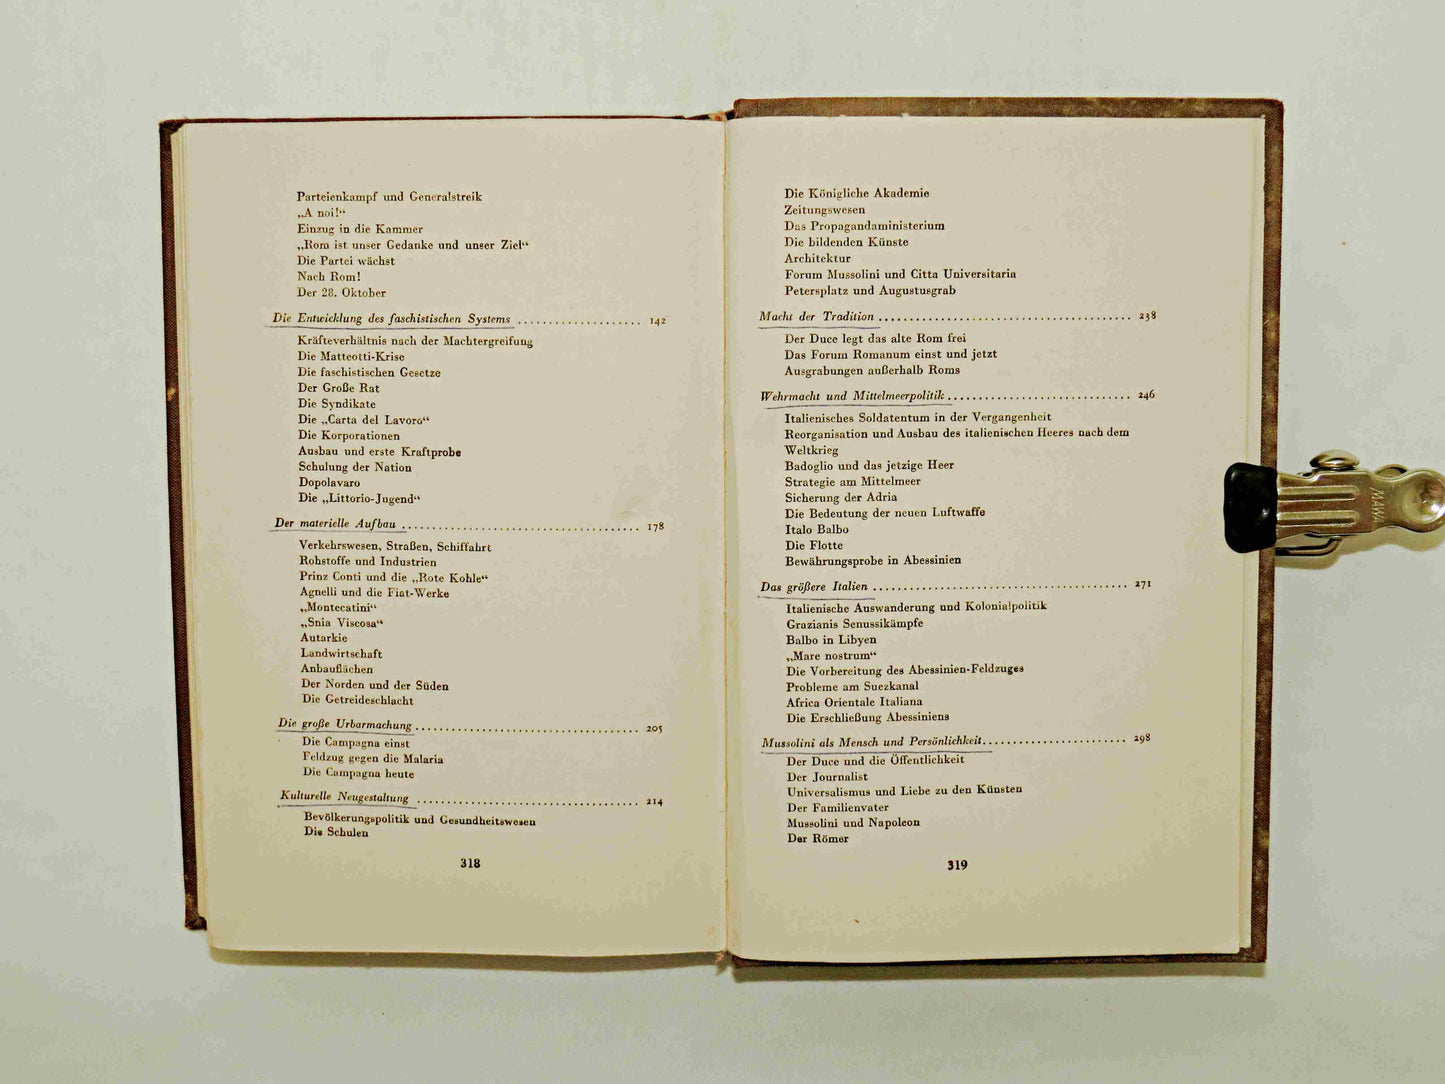 Parteienkampf und Generalstreik
„A noi!“
Einzug in die Kammer
„Rom ist unser Gedanke und unser Ziel“
Die Partei wächst
Nach Rom!
Der 28. Oktober
Die Entwicklung des faschistischen Systems .................... 142
Kräfteverhältnis nach der Machtergreifung
Die Matteotti-Krise
Die faschistischen Gesetze
Der Große Rat
Die Syndikate
Die „Carta del Lavoro“
Die Korporationen
Ausbau und erste Kraftprobe
Schulung der Nation
Dopolavaro
Die „Littorio-Jugend“
Der materielle Aufbau ...................................... 178
Verkehrswesen, Straßen, Schiffahrt
Rohstoffe und Industrien
Prinz Conti und die „Rote Kohle“
Agnelli und die Fiat-Werke
„Montecatini“
„Snia Viscosa“
Autarkie
Landwirtschaft
Anbauflächen
Der Norden und der Süden
Die Getreideschlacht
Die große Urbarmachung .................................... 205
Die Campagna einst
Feldzug gegen die Malaria
Die Campagna heute
Kulturelle Neugestaltung .................................... 214
Bevölkerungspolitik und Gesundheitswesen
Die Schulen
318
Die Königliche Akademie
Zeitungswesen
Das Propagandaministerium
Die bildenden Künste
Architektur
Forum Mussolini und Citta Universitaria
Petersplatz und Augustusgrab
Macht der Tradition ........................................ 238
Der Duce legt das alte Rom frei
Das Forum Romanum einst und jetzt
Ausgrabungen außerhalb Roms
Wehrmacht und Mittelmeerpolitik .............................. 246
Italienisches Soldatentum in der Vergangenheit
Reorganisation und Ausbau des italienischen Heeres nach dem
Weltkrieg
Badoglio und das jetzige Heer
Strategie am Mittelmeer
Sicherung der Adria
Die Bedeutung der neuen Luftwaffe
Italo Balbo
Die Flotte
Bewährungsprobe in Abessinien
Das größere Italien ......................................... 271
Italienische Auswanderung und Kolonialpolitik
Grazianis Senussikämpfe
Balbo in Libyen
„Mare nostrum“
Die Vorbereitung des Abessinien-Feldzuges
Probleme am Suezkanal
Africa Orientale Italiana
Die Erschließung Abessiniens
Mussolini als Mensch und Persönlichkeit........................ 298
Der Duce und die Öffentlichkeit
Der Journalist
Universalismus und Liebe zu den Künsten
Der Familienvater
Mussolini und Napoleon
Der Römer
319
MAWA